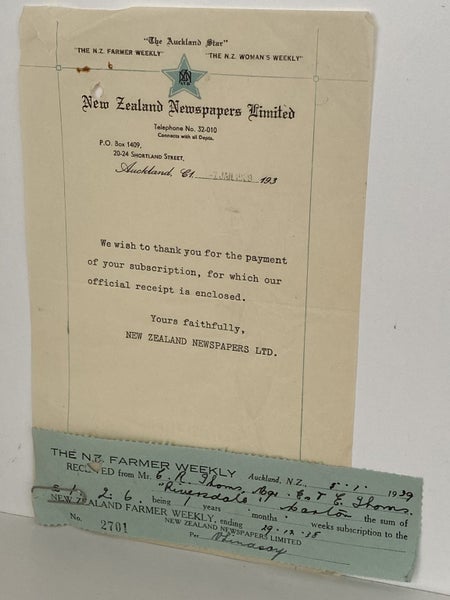 "The Auckland Star"
"THE N.Z. FARMER WEEKLY" "THE N.Z. WOMAN'S WEEKLY"
New Zealand Newspapers Limited
Telephone No. 32-010
Connects with all Depts.
P.O. Box 1409,
20-24 SHORTLAND STREET,
Auckland, C1. JAN 193
We wish to thank you for the payment
of your subscription, for which our
official receipt is enclosed.
Yours faithfully,
NEW ZEALAND NEWSPAPERS LTD.
THE N.Z. FARMER WEEKLY Auckland, N.Z. 5.1. 1939
RECEIVED from Mr. E. R. Thoms
"Riversdale" Marton the sum of
£1. 2. 6. being years months weeks subscription to the
NEW ZEALAND FARMER WEEKLY, ending 29.12.
NEW ZEALAND NEWSPAPERS LIMITED
No. 2701 Per Lindsay